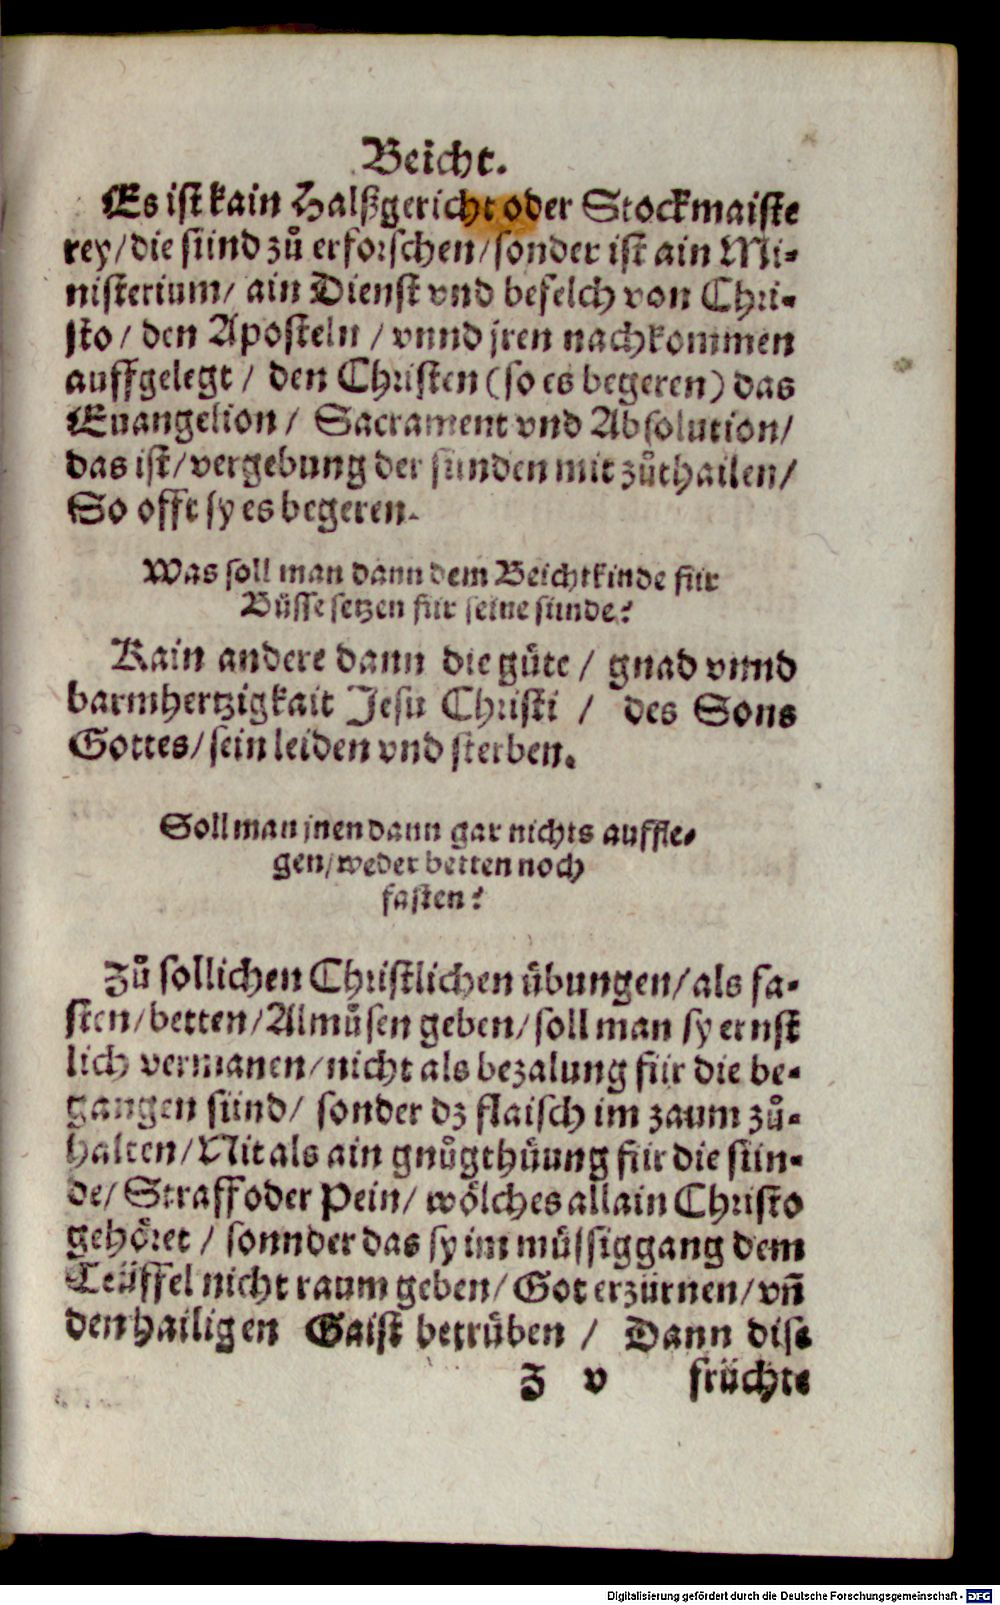 Beicht.
Es ist kain Halßgericht oder Stockmaiste
rey/die sünd zů erforschen/sonder ist ain Mi-
nisterium/ ain Dienst vnd befelch von Chri-
sto/ den Aposteln / vnnd jren nachkommen
auffgelegt / den Christen (so es begeren) das
Euangelion / Sacrament vnd Absolution/
das ist/vergebung der sünden mit zůthailen/
So offt sy es begeren.
Was soll man dann dem Beichtkinde für
Büsse setzen für seine sünde?
Kain andere dann die güte / gnad vnnd
barmhertzigkait Jesu Christi / des Sons
Gottes/sein leiden vnd sterben.
Soll man jnen dann gar nichts auffle-
gen/weder betten noch
fasten?
Zů sollichen Christlichen übungen/als fa-
sten/betten/Almůsen geben/soll man sy ernst
lich vermanen/nicht als bezalung für die be-
gangen sünd/ sonder dz flaisch im zaum zů-
halten/Nit als ain gnůgthüung für die sün-
de/ Straff oder Pein/ wölches allain Christo
gehöret / sonnder das sy im müssiggang dem
Teüffel nicht raum geben/ Got erzürnen/ vñ
den hailigen Gaist betrüben / Dann dise
Z v früchte
Digitalisierung gefördert durch die Deutsche Forschungsgemeinschaft - DFG